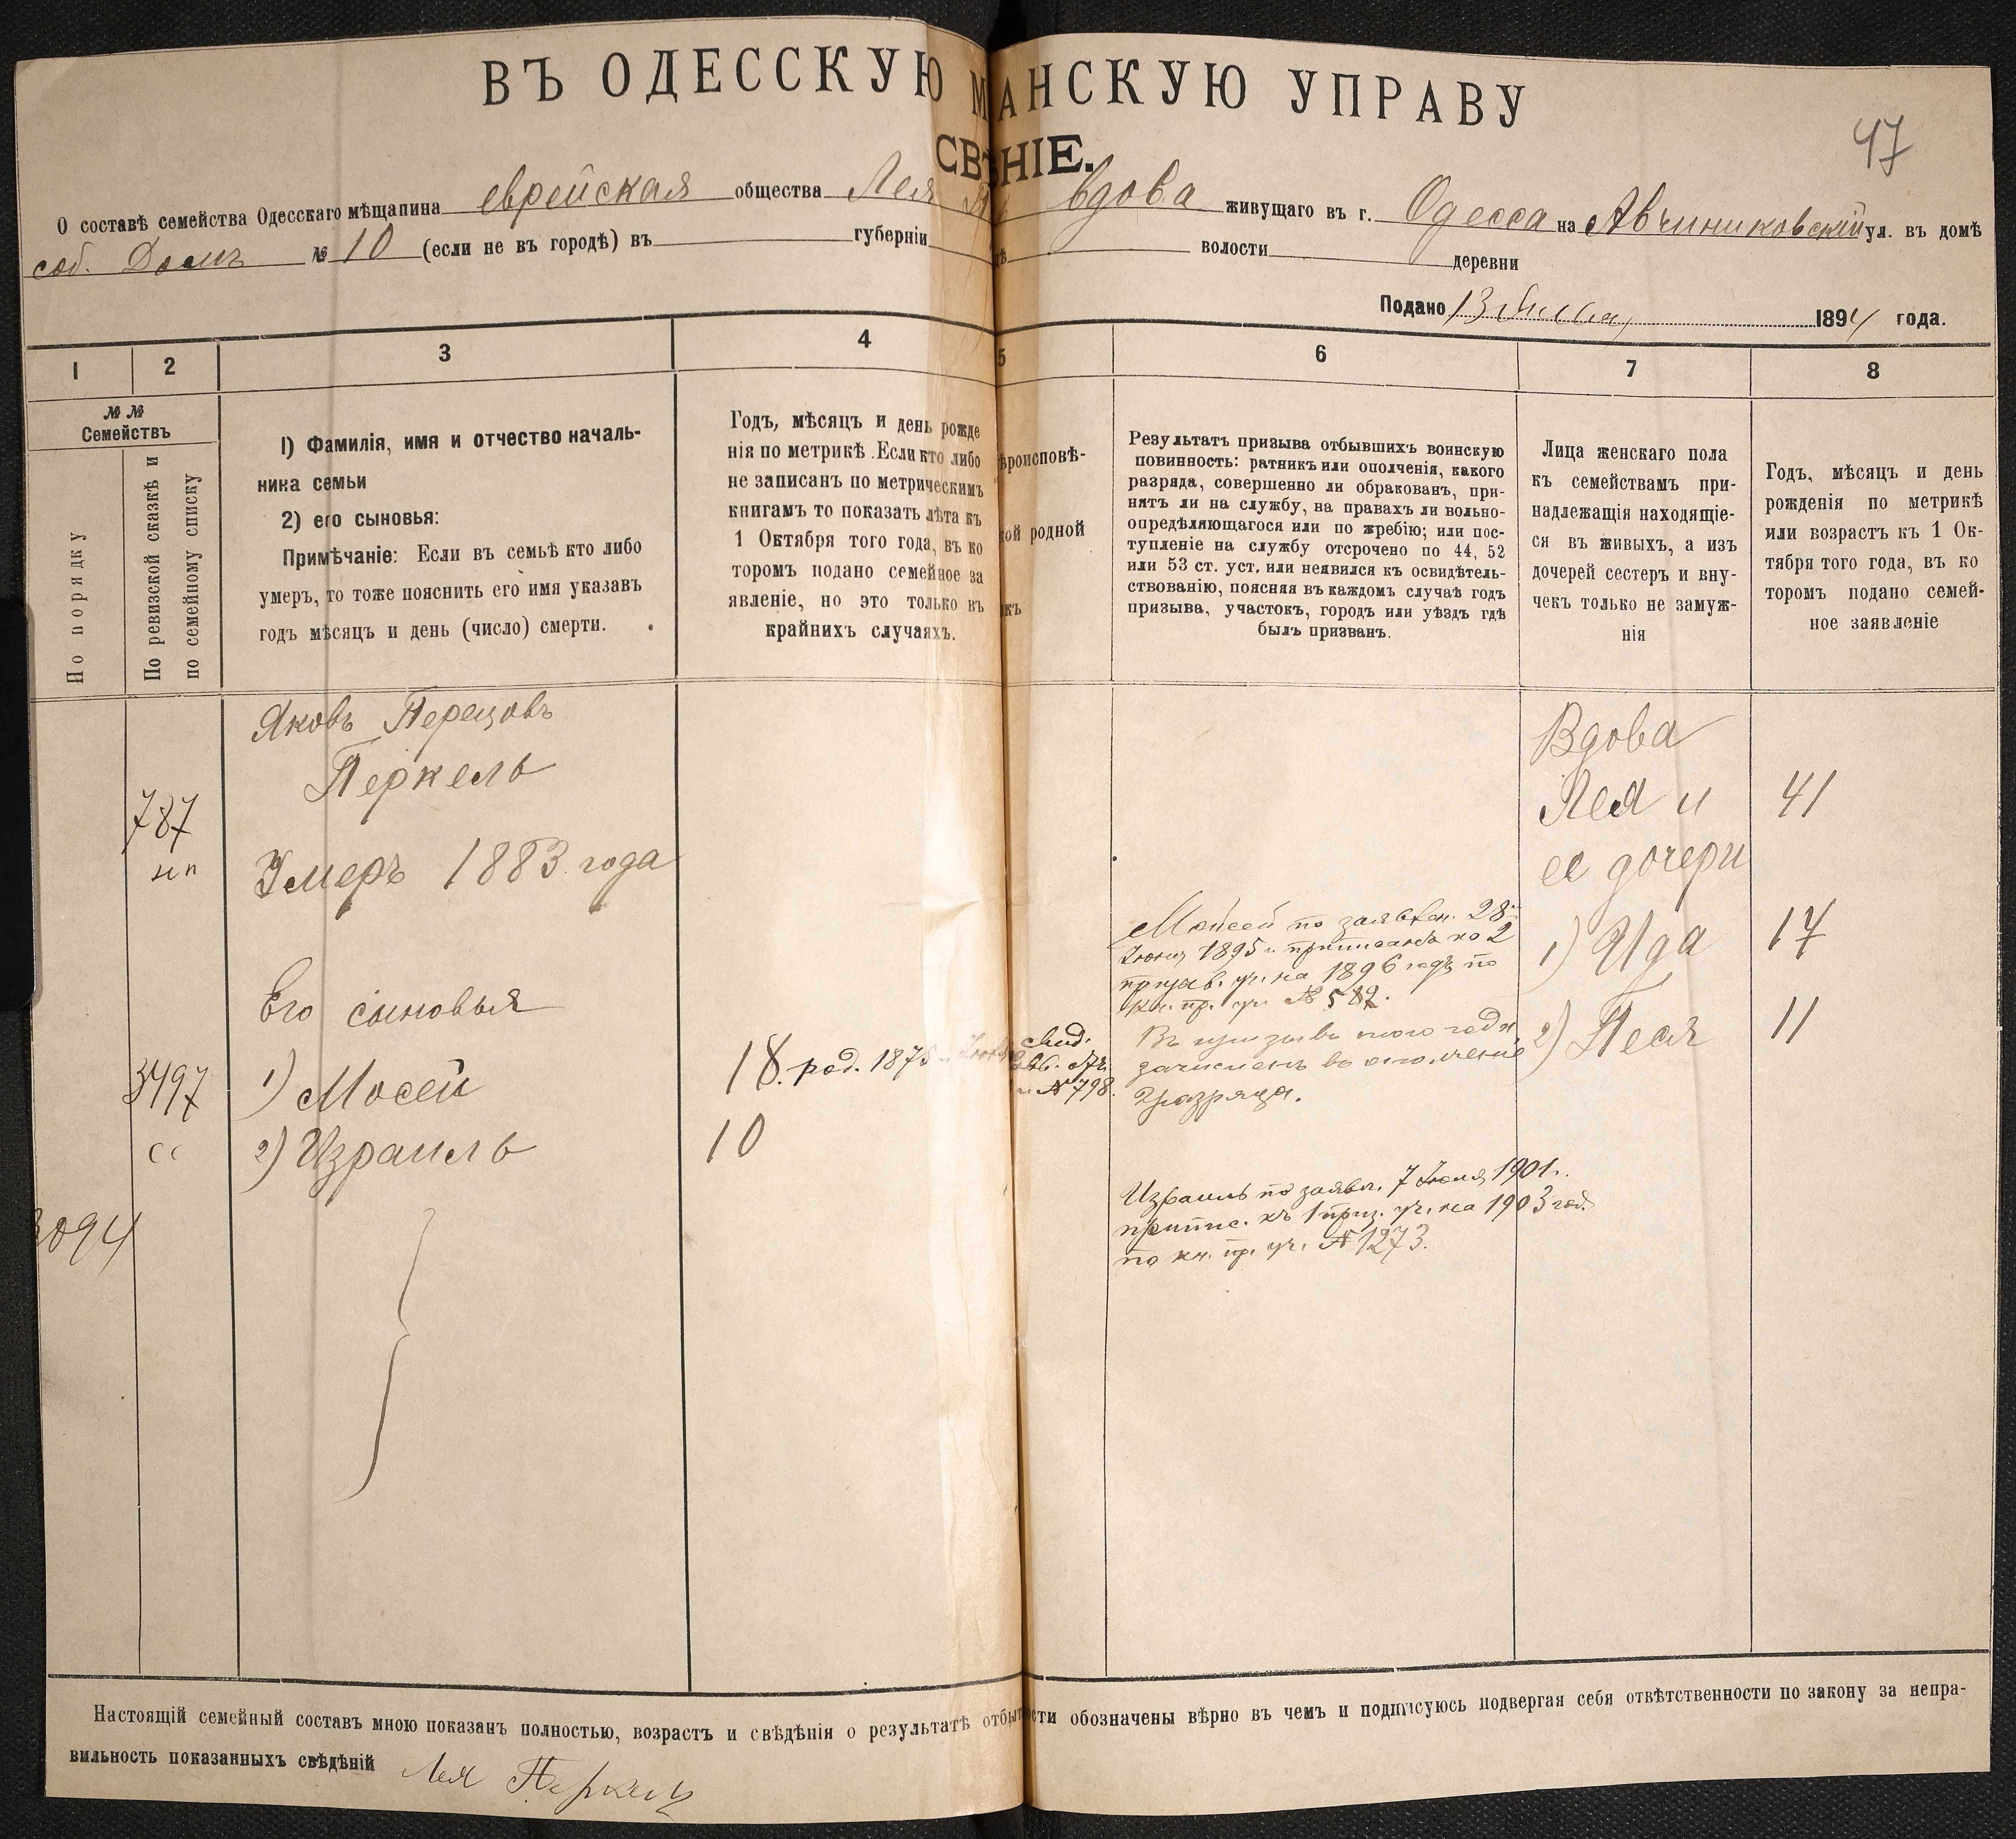 ВЪ ОДЕССКУЮ М АНСКУЮ УПРАВУ
СВѢ НІЕ.
47
О составѣ семейства Одесскаго мѣщанина еврейская общества Лея вдова живущаго въ г. Одесса на Авчинниковскій ул. въ домѣ
соб. Домъ № 10 (если не въ городѣ) въ губерніи дѣ волости деревни
Подано 13 1894 года.
1 2 3 4 5 6 7 8
№ №
Семействъ
По порядку
По ревизской сказкѣ и
по семейному списку
1) Фамилія, имя и отчество началь-
ника семьи
2) его сыновья:
Примѣчаніе: Если въ семьѣ кто либо
умеръ, то тоже пояснить его имя указавъ
годъ мѣсяцъ и день (число) смерти.
Годъ, мѣсяцъ и день рожде
нія по метрикѣ. Если кто либо
не записанъ по метрическимъ
книгамъ то показать лѣта къ
1 Октября того года, въ ко
торомъ подано семейное за
явленіе, но это только въ
крайнихъ случаяхъ.
ѣроисповѣ-
кой родной
икъ
Результатъ призыва отбывшихъ воинскую
повинность: ратникъ или ополченія, какого
разряда, совершенно ли обракованъ, при-
нятъ ли на службу, на правахъ ли вольно-
опредѣляющагося или по жребію; или пос-
тупленіе на службу отсрочено по 44, 52
или 53 ст. уст. или неявился къ освидѣтель-
ствованію, поясняя въ каждомъ случаѣ годъ
призыва, участокъ, городъ или уѣздъ гдѣ
былъ призванъ.
Лица женскаго пола
къ семействамъ при-
надлежащія находящіе-
ся въ живыхъ, а изъ
дочерей сестеръ и вну-
чекъ только не замуж-
нія
Годъ, мѣсяцъ и день
рожденія по метрикѣ
или возрастъ къ 1 Ок-
тября того года, въ ко
торомъ подано семей-
ное заявленіе
Яковъ Перецовъ
Перкель
787
нп
Умеръ 1883 года
Его сыновья
3497
1) Мосей
18. род. 1875
№ 798.
сс
2) Израиль
10
3094
Мойсей по заявлен. 28
Іюня 1895 г. приписанъ ко 2
призыв. уч. на 1896 годъ по
кн. пр. уч. № 582.
Въ призывъ того года
зачисленъ въ ополченіе
2 разряда.
Израиль по заявл. 7 Іюня 1901 г.
припис. къ 1 приз. уч. на 1903 год.
по кн. пр. уч. № 1273.
Вдова
Лея и 41
ее дочери
1) Ида 17
2) Песя 11
Настоящій семейный составъ мною показанъ полностью, возрастъ и свѣдѣнія о результатѣ отбыт ости обозначены вѣрно въ чемъ и подписуюсь подвергая себя отвѣтственности по закону за непра-
вильность показанныхъ свѣдѣній Лея Перкель